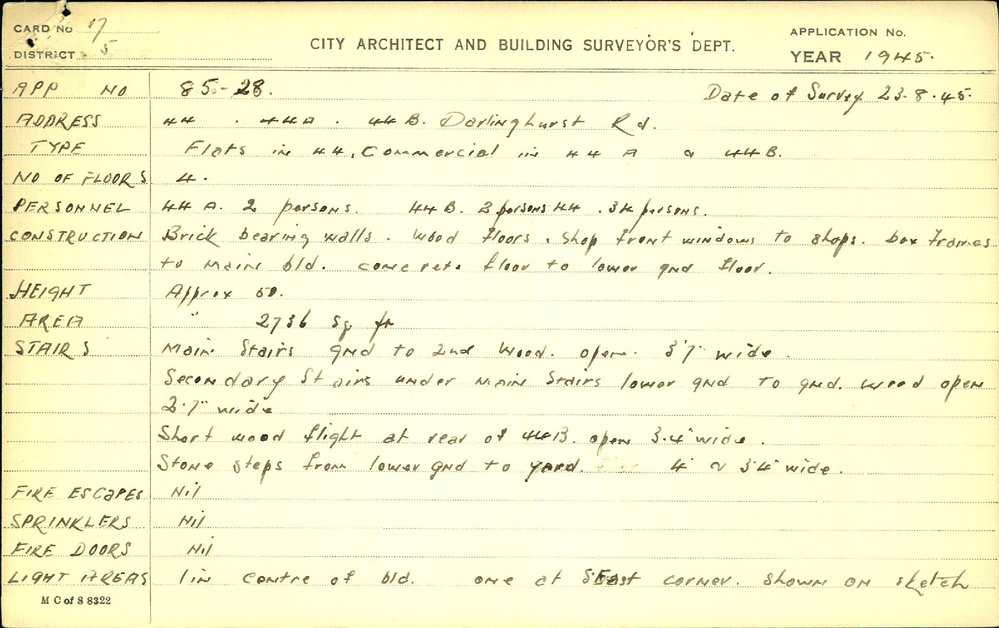 CARD No 17
DISTRICT 5
CITY ARCHITECT AND BUILDING SURVEYOR'S DEPT.
APPLICATION No.
YEAR 1945.
APP NO 85-28. Date of Survey 23.8.45.
ADDRESS 44 . 44A . 44B. Darlinghurst Rd.
TYPE Flats in 44, Commercial in 44A & 44B.
NO OF FLOORS 4.
PERSONNEL 44A. 2 persons. 44B. 2 persons 44 . 34 persons.
CONSTRUCTION Brick bearing walls. Wood floors. Shop front windows to shops. box frames
to main bld. concrete floor to lower gnd floor.
HEIGHT Approx 50.
AREA " 2736 Sq ft
STAIRS Main Stairs gnd to 2nd Wood. open. 3'7" wide.
Secondary Stairs under main stairs lower gnd to gnd. wood open
2'7" wide
Short wood flight at rear of 44B. open 3'4" wide.
Stone steps from lower gnd to yard. 4' & 3'4" wide.
FIRE ESCAPES Nil
SPRINKLERS Nil
FIRE DOORS Nil
LIGHT AREAS 1 in centre of bld. one at SEast corner. shown on sketch
M C of S 8322